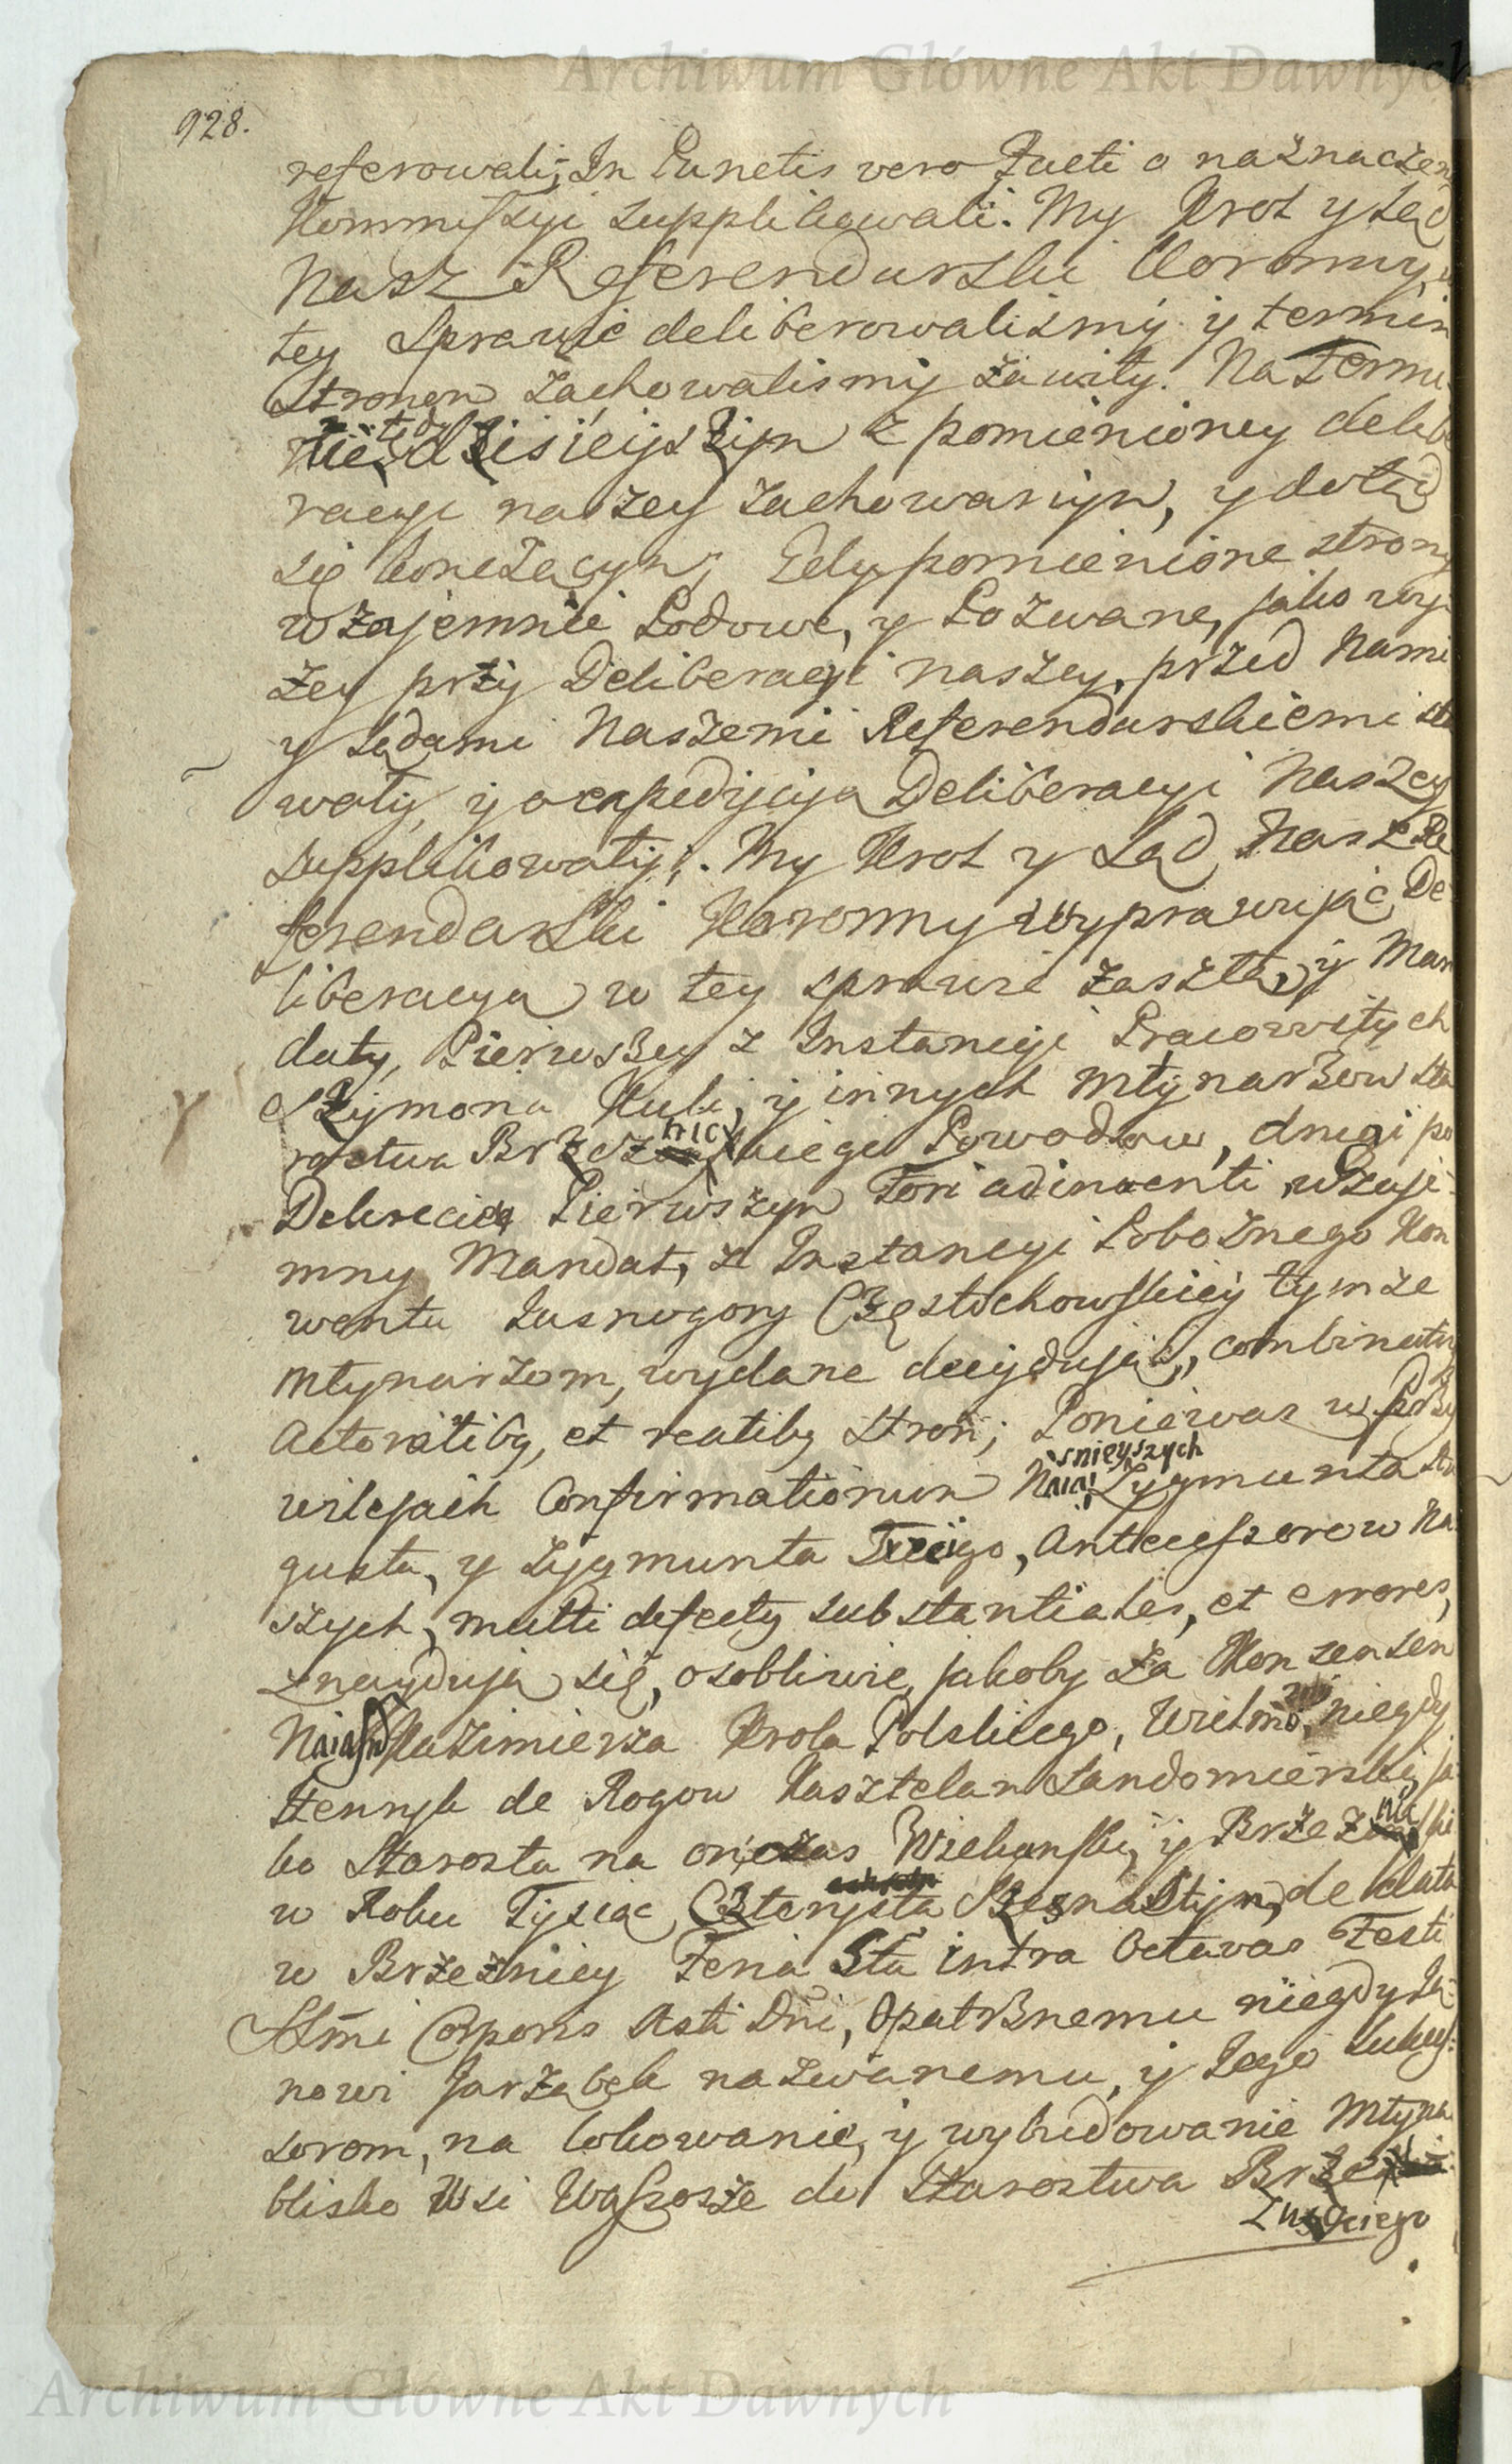 Archiwum Główne Akt Dawnych
928.
referowali; In Punctis vero Facti o naznaczen
Kommissyi supplikowali. My Krol y Sąd
Nasz Referendarski Koronny, w
tey Sprawie deliberowalismy y termin
Stronom zachowalismy zawity. Na Termi
nie tedy dzisieyszym z pomienioney delibe
racyi naszey zachowanym, y dotąd
się konczącym; Gdy pomienione strony
wzajemnie Podowe, y Pozwane, jako wy
zey przy Deliberacyi naszey, przed Nami
y Sądami Naszemi Referendarskiemi sta
wały, y o expedycyą Deliberacyi Naszey
supplikowały; My Krol y Sąd Nasz Re
ferendarski Koronny wyprawując De
liberacyą w tey sprawie zaszłą, y Man
daty, Pierwszy z Instancyi Pracowitych
Szymona Kuli, y innych Młynarzow sta
rostwa Brzeznickiego Powodow, drugi po
Dekrecie Pierwszym Fori adinventi wzaje
mny Mandat, z Instancyi Pobożnego Kon
wentu Jasnogory Częstochowskiey tymze
Młynarzom, wydane decydując, combinatis
Actoratibg, et reatibg stron; Poniewas w Przy
wilejach Confirmationum Naiasnieyszych Zygmunta Au
gusta, y Zygmunta Trzeciego, Antecessorow Na
szych, multi defectg substantiales, et errores,
znaydują się, osobliwie, jakoby za Konsensem
Naiasn Kazimierza Krola Polskiego, Wielmo niegdy
Henryk de Rogow Kasztelan Sandomierski, ja
ko Starosta na onczas Wielunski, y Brzeznicki
w Roku Tysiąc Czterysta Szesnastym, de data
w Brzeznicy Feria Sta intra Octavas Festi
SSmi Corporis Xsti Dni, Opatrznemu niegdy
nowi Jarząbek nazwanemu, y Jego Sukces:
sorom, na lokowanie, y wybudowanie Młyna
blisko Wsi Wąsosze do Starostwa Brze
Archiwum Główne Akt Dawnych